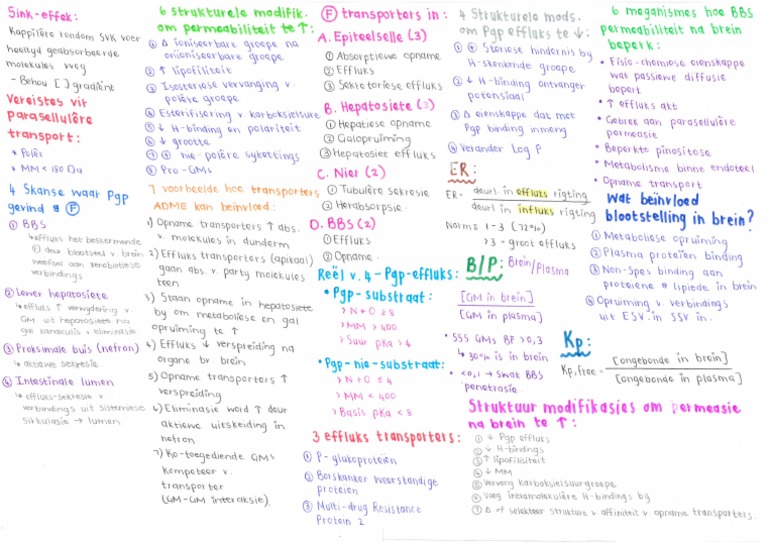 Sink-effek:
Kappilêre rondom SVK voer
heeltyd geabsorbeerde
molekules weg
- Behou [ ] gradiënt
Vereistes vir
parasellulêre
transport:
* Polêr
* MM < 180 Da
4 Skanse waar Pgp
gevind # (F)
① BBS
↳ effluks het beskermende
(F) deur blootstel v brein
weefsel aan xenobiotiese
verbindings
② Lewer hepatosiete
↳ effluks ↑ verwydering v.
GM uit hepatosiete na
gal kanalkulis v eliminasie
③ Proksimale buis (nefron)
↳ aktiewe sekresie
④ Intestinale lumen
↳ effluks-sekresie v
verbindings uit sistemiese
sirkulasie → lumen
6 strukturele modifik.
om permeabiliteit te ↑:
① Δ ioniseerbare groepe na
onioniseerbare groepe
② ↑ lipofiliteit
③ Isosteriese vervanging v.
polêre groepe
④ Esterifisering v karboksielsure
⑤ ↓ H-binding en polariteit
⑥ ↓ grootte
⑦ + nie-polêre sykettings
⑧ Pro-GMs
7 voorbeelde hoe transporters
ADME kan beïnvloed:
1) Opname transporters ↑ abs.
v. molekules in dunderm
2) Effluks transporters (apikaal)
gaan abs. v. party molekules
teen
3) Staan opname in hepatosiete
by om metaboliese en gal
opruiming te ↑
4) Effluks ↓ verspreiding na
organe bv brein
5) Opname transporters ↑
verspreiding
6) Eliminasie word ↑ deur
aktiewe uitskeiding in
nefron
7) Ko-toegediende GMs
kompeteer v.
transporter
(GM-GM interaksie).
(F) transporters in:
A. Epiteelselle (3)
① Absorptiewe opname
② Effluks
③ Sekretoriese effluks
B. Hepatosiete (3)
① Hepatiese opname
② Galopruiming
③ Hepatosiet effluks
C. Nier (2)
① Tubulêre sekresie
② Herabsorpsie
D. BBS (2)
① Effluks
② Opname
Reël v. 4 - Pgp-effluks:
• Pgp-substraat:
> N + O ≥ 8
> MM > 400
> Suur pKa > 4
• Pgp-nie-substraat:
> N + O ≤ 4
> MM < 400
> Basis pKa < 8
3 effluks transporters:
① P-glukoproteïen
② Borskanker weerstandige
proteïen
③ Multi-drug Resistance
Protein 2
4 Strukturele mods.
om Pgp effluks te ↓:
① + Steriese hindernis by
H-skenkende groepe
② ↓ H-binding ontvanger
potensiaal
③ Δ eienskappe dat met
Pgp binding inmeng
④ Verander Log P
ER:
ER = deurl in effluks rigting
deurl in influks rigting
Norm: 1-3 (72%)
>3 - groot effluks
B/P: Brein/Plasma
[GM in brein]
[GM in plasma]
• SSS GMs BP > 0,3
↳ 30% is in brein
• <0,1 → swak BBS
penetrasie
6 meganismes hoe BBS
permeabiliteit na brein
beperk:
• Fisio-chemiese eienskappe
wat passiewe diffusie
beperk
• ↑ effluks akt
• Gebrek aan parasellulêre
permeasie
• Beperkte pinositose
• Metabolisme binne endoteel
• Opname transport
Wat beïnvloed
blootstelling in brein?
① Metaboliese opruiming
② Plasma proteïen binding
③ Non-spes binding aan
proteïene # lipiede in brein
④ Opruiming v verbindings
uit ESV in SSV in.
Kp:
Kp,free = [ongebonde in brein]
[ongebonde in plasma]
Struktuur modifikasies om permeasie
na brein te ↑:
① ↓ Pgp effluks
② ↓ H-bindings
③ ↑ lipofilisiteit
④ ↓ MM
⑤ Vervang karboksielsuurgroepe
⑥ Voeg intramolekulêre H-bindings by
⑦ Δ of selekteer strukture v affiniteit v opname transporters.